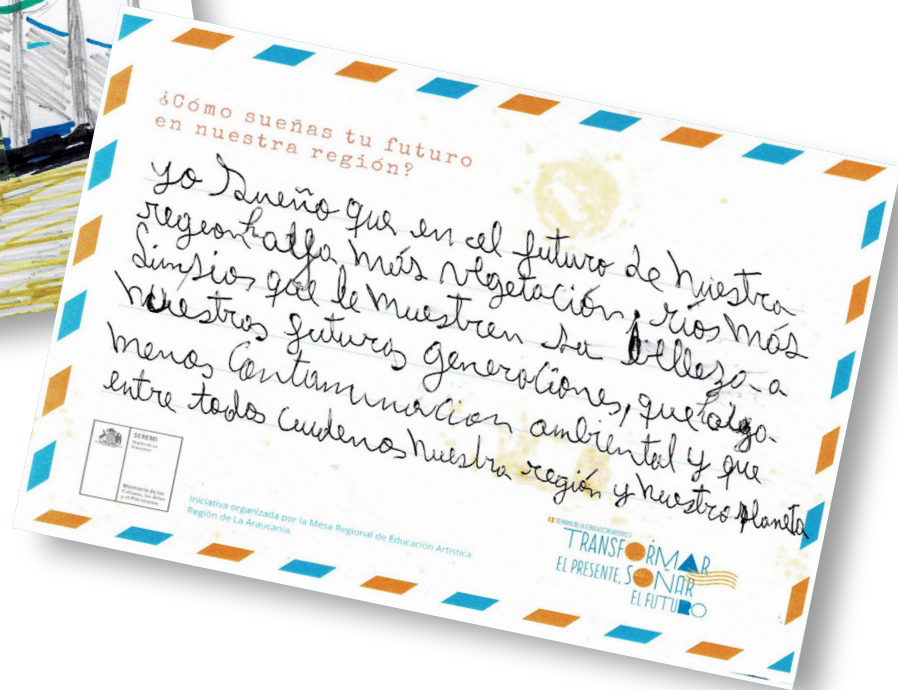 ¿Cómo sueñas tu futuro
en nuestra región?
yo sueño que en el futuro de nuestra
region halla más vegetación, ríos más
limpios que le muestren su belleza a
nuestras futuras generaciones, que haiga
menos contaminacion ambiental y que
entre todos cuidemos nuestra región y nuestro planeta
SEREMI
Región de La
Araucanía
Ministerio de las
Culturas, las Artes
y el Patrimonio
Iniciativa organizada por la Mesa Regional de Educación Artística
Región de La Araucanía.
SEMANA DE LA EDUCACIÓN ARTÍSTICA
TRANSFORMAR
EL PRESENTE, SOÑAR
EL FUTURO